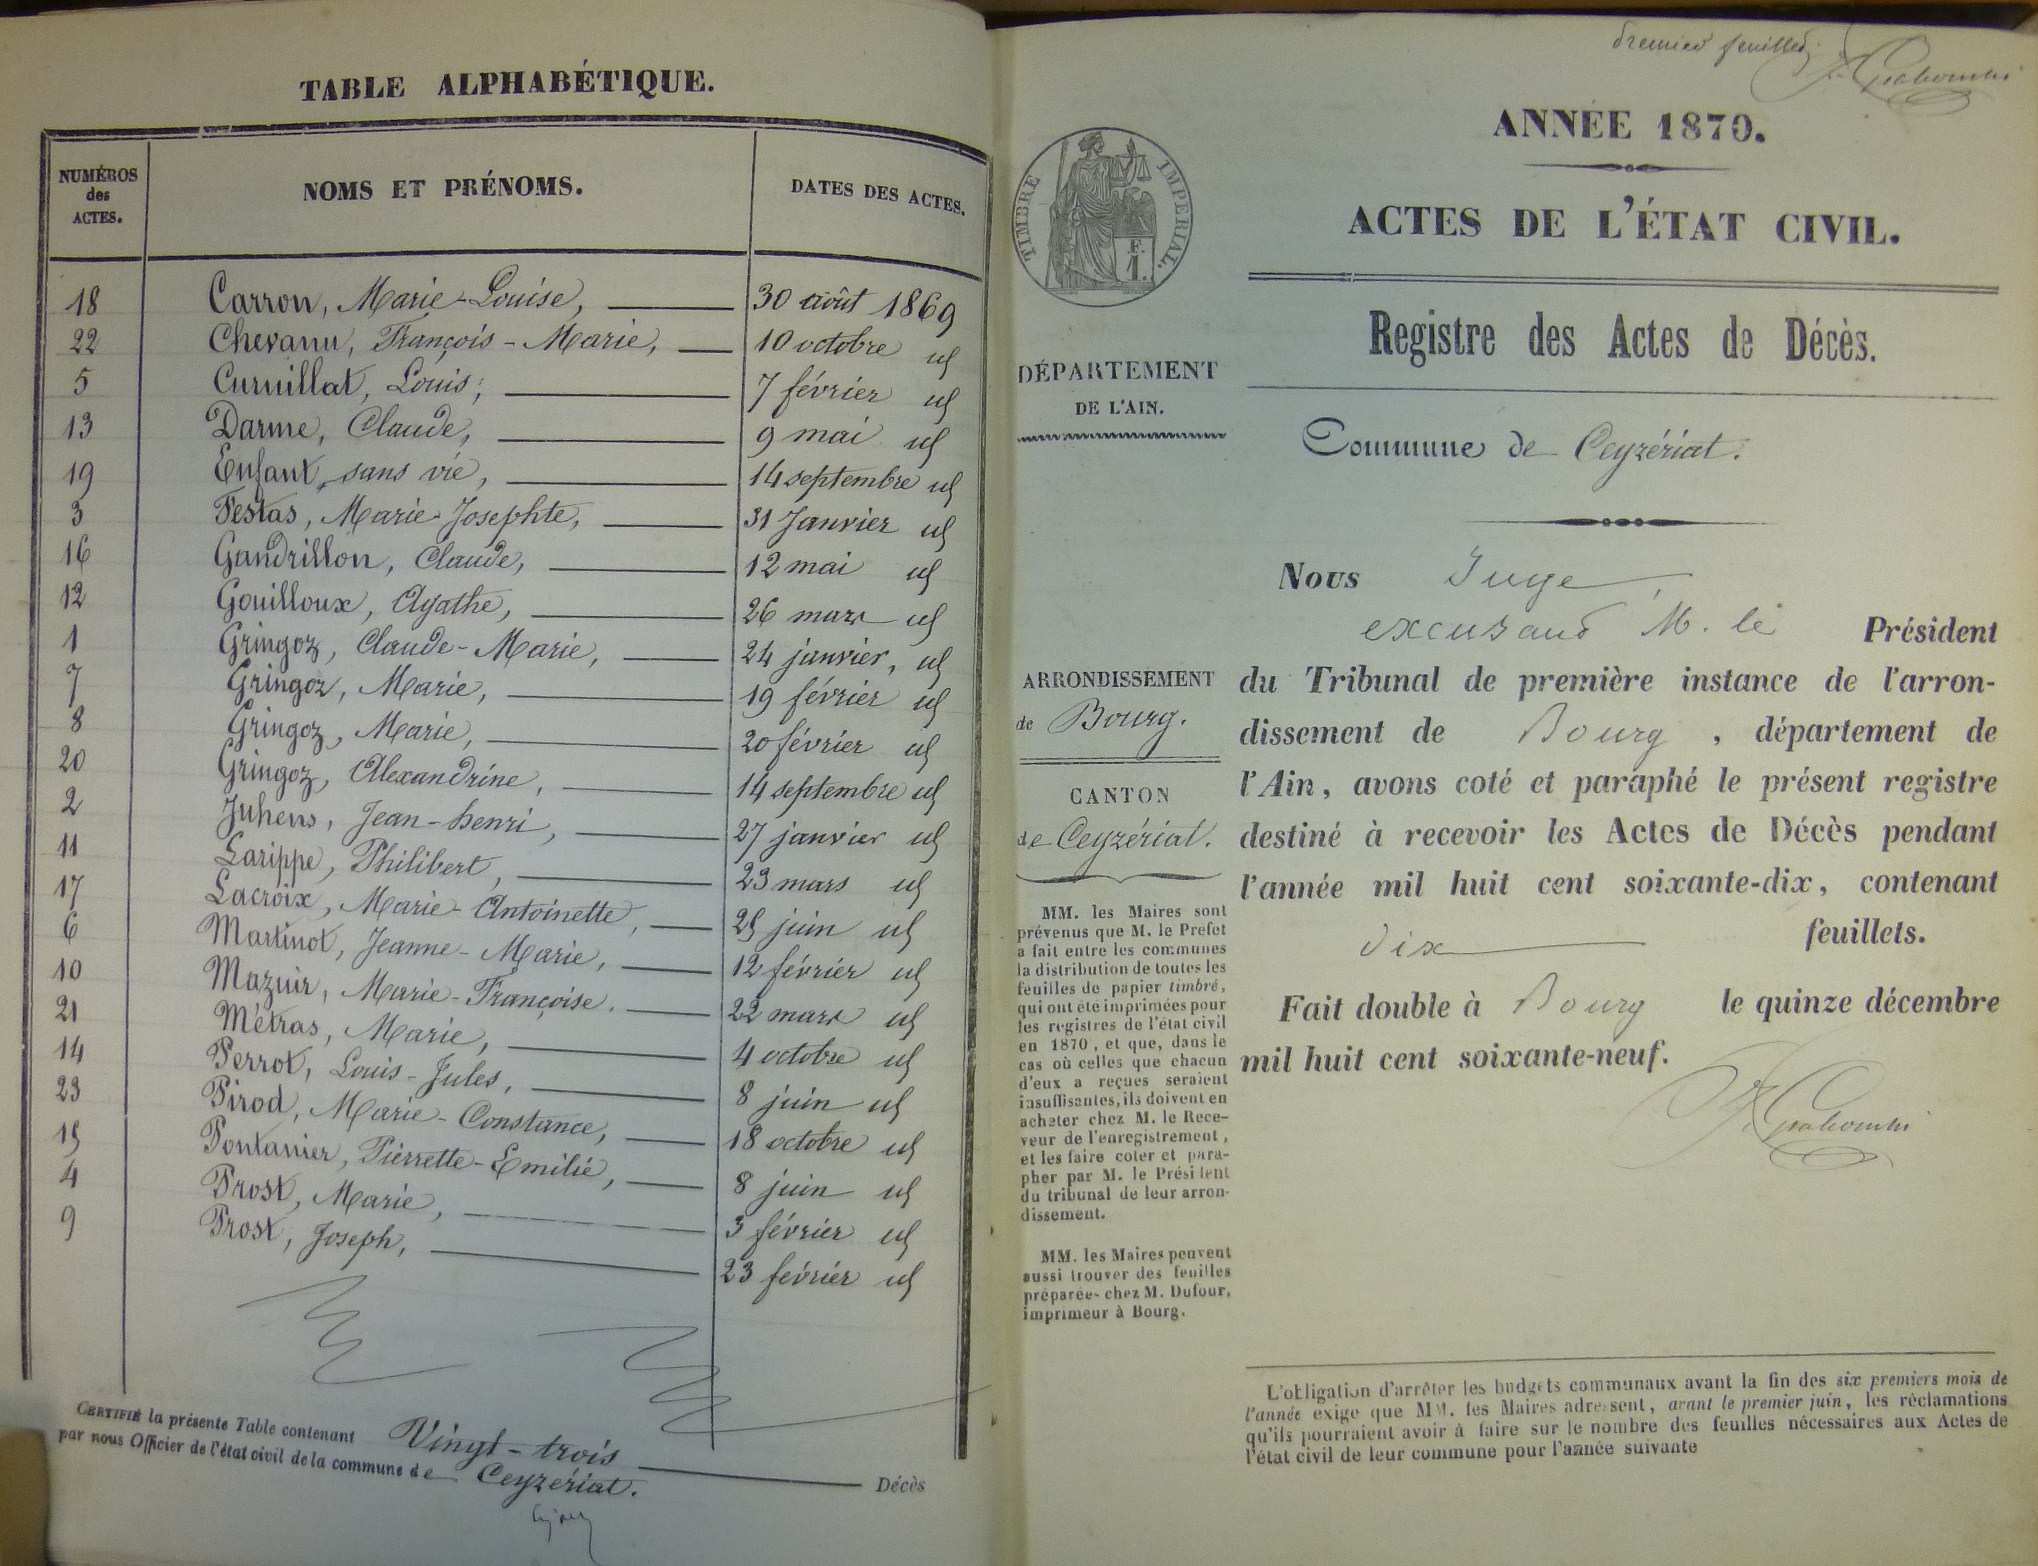 TABLE ALPHABÉTIQUE.
NUMÉROS des ACTES.
NOMS ET PRÉNOMS.
DATES DES ACTES.
18 Carron, Marie-Louise, 30 août 1869
22 Chevanu, François-Marie, 10 octobre id
5 Curnillat, Louis, 7 février id
13 Darme, Claude, 9 mai id
19 Enfant sans vie, 14 septembre id
3 Festas, Marie-Josephte, 31 Janvier id
16 Gandrillon, Claude, 12 mai id
12 Gouilloux, Agathe, 26 mars id
1 Gringoz, Claude-Marie, 24 janvier, id
7 Gringoz, Marie, 19 février id
8 Gringoz, Marie, 20 février id
20 Gringoz, Alexandrine, 14 septembre id
2 Juhens, Jean-henri, 27 janvier id
11 Larippe, Philibert, 23 mars id
17 Lacroix, Marie-Antoinette, 25 juin id
6 Martinot, Jeanne-Marie, 12 février id
10 Mazuir, Marie-Françoise. 22 mars id
21 Métras, Marie, 4 octobre id
14 Perrot, Louis-Jules, 8 juin id
23 Pirod, Marie-Constance, 18 octobre id
15 Pontanier, Pierrette-Emilie, 8 juin id
4 Prost, Marie, 3 février id
9 Prost, Joseph, 23 février id
CERTIFIÉ la présente Table contenant Vingt-trois Décès
par nous Officier de l'état civil de la commune de Ceyzériat.
premier feuillet
ANNÉE 1870.
ACTES DE L'ÉTAT CIVIL.
Registre des Actes de Décès.
Commune de Ceyzériat.
TIMBRE IMPERIAL.
F.
1.
DÉPARTEMENT
DE L'AIN.
ARRONDISSEMENT
de Bourg.
CANTON
de Ceyzériat.
MM. les Maires sont
prévenus que M. le Prefet
a fait entre les communes
la distribution de toutes les
feuilles de papier timbré,
qui ont été imprimées pour
les registres de l'état civil
en 1870, et que, dans le
cas où celles que chacun
d'eux a reçues seraient
insuffisantes, ils doivent en
acheter chez M. le Rece-
veur de l'enregistrement,
et les faire coter et para-
pher par M. le Président
du tribunal de leur arron-
dissement.
MM. les Maires peuvent
aussi trouver des feuilles
préparées chez M. Dufour,
imprimeur à Bourg.
Nous Juge,
excusant M. le Président
du Tribunal de première instance de l'arron-
dissement de Bourg, département de
l'Ain, avons coté et paraphé le présent registre
destiné à recevoir les Actes de Décès pendant
l'année mil huit cent soixante-dix, contenant
dix feuillets.
Fait double à Bourg le quinze décembre
mil huit cent soixante-neuf.
L'obligation d'arrêter les budgets communaux avant la fin des six premiers mois de
l'année exige que MM. les Maires adressent, avant le premier juin, les réclamations
qu'ils pourraient avoir à faire sur le nombre des feuilles nécessaires aux Actes de
l'état civil de leur commune pour l'année suivante